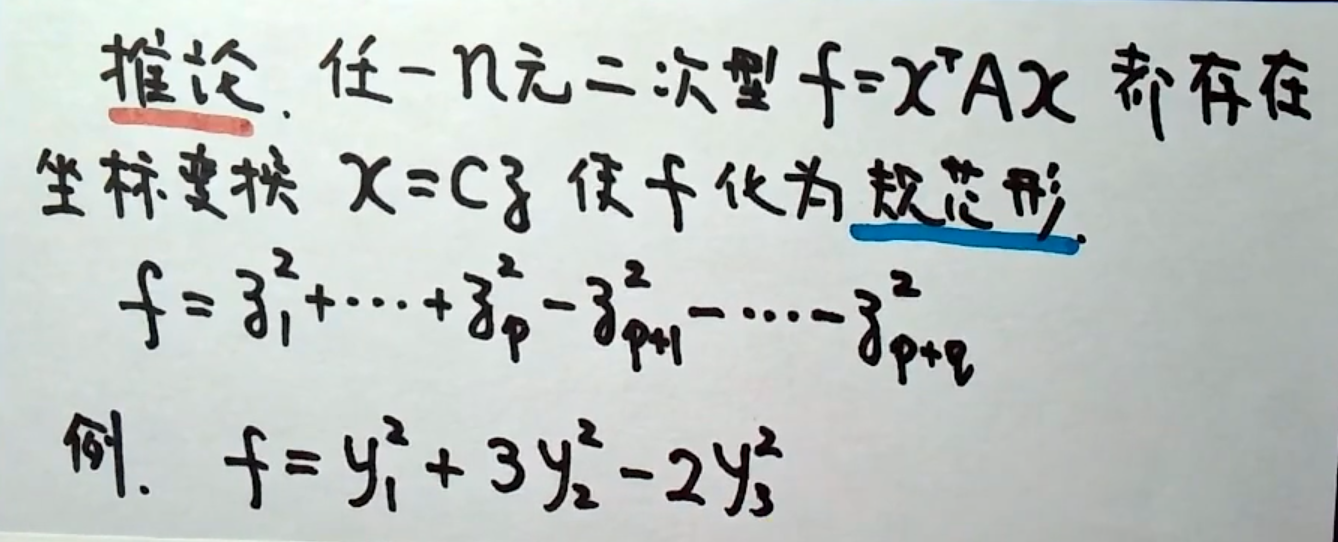 推论. 任一n元二次型 f=xᵀAx 都存在
坐标变换 x=Cz 使f化为规范形.
f=z₁²+⋯+z_p²-z_{p+1}²-⋯-z_{p+q}²
例. f=y₁²+3y₂²-2y₃²